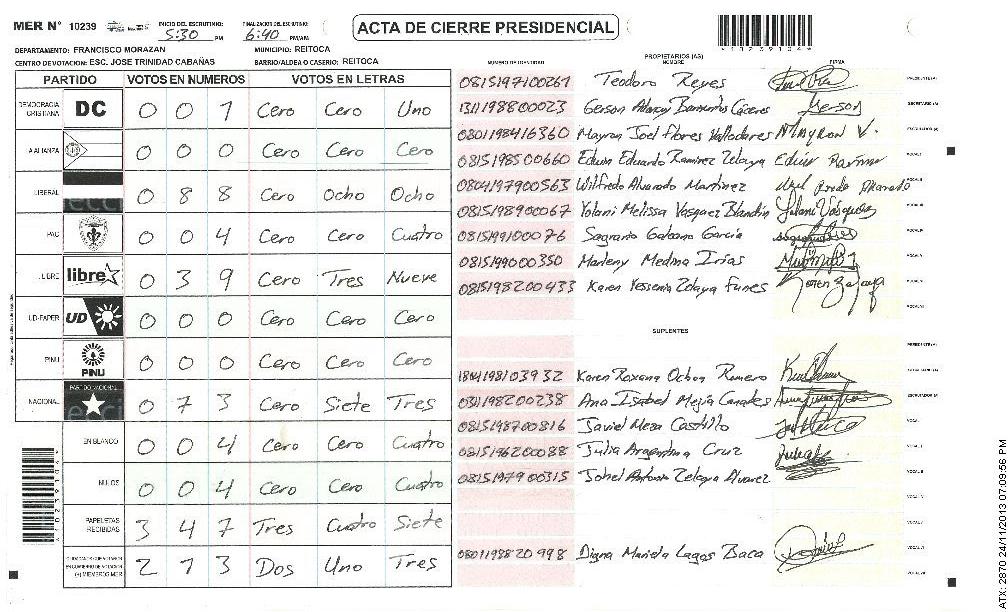 MER N° 10239 INICIO DEL ESCRUTINIO: 5:30 PM FINALIZACION DEL ESCRUTINIO: 6:40 PM/AM ACTA DE CIERRE PRESIDENCIAL
DEPARTAMENTO: FRANCISCO MORAZAN MUNICIPIO: REITOCA
CENTRO DE VOTACION: ESC. JOSE TRINIDAD CABAÑAS BARRIO/ALDEA O CASERIO: REITOCA
PARTIDO VOTOS EN NUMEROS VOTOS EN LETRAS
DEMOCRACIA CRISTIANA DC 0 0 1 Cero Cero Uno
ALIANZA 0 0 0 Cero Cero Cero
LIBERAL 0 8 8 Cero Ocho Ocho
PAC 0 0 4 Cero Cero Cuatro
LIBRE libre 0 3 9 Cero Tres Nueve
UD-FAPER UD 0 0 0 Cero Cero Cero
PINU PINU 0 0 0 Cero Cero Cero
NACIONAL PARTIDO NACIONAL 0 7 3 Cero Siete Tres
EN BLANCO 0 0 4 Cero Cero Cuatro
NULOS 0 0 4 Cero Cero Cuatro
PAPELETAS RECIBIDAS 3 4 7 Tres Cuatro Siete
CIUDADANOS QUE VOTARON (+) MIEMBROS MER 2 1 3 Dos Uno Tres
NUMERO DE IDENTIDAD PROPIETARIOS (AS) NOMBRE FIRMA
0815197100261 Teodoro Reyes
1311198800023 Gerson
0801198416360 Mayron Joel Flores Valladares Mayron V.
0815198500660 Edwin Eduardo Ramirez Zelaya
0804197900563 Wilfredo Alvarado Martinez
0815198900067 Yolani Melissa Vasquez Blandin Yolani Vásquez
0815199100076 Sagrario Galeano Garcia
0815199000350 Marleny Medina Irías
0815198200433 Karen Yessenia Zelaya Funes Karen Zelaya
SUPLENTES
1804198103932 Karen Roxana Ochoa Romero
0311198200238 Ana Isabel Mejía Canales
0815198700816 Javiel Meza Castillo
0815196200088 Julia Argentina Cruz
0815197900315 Johel Antonio Zelaya Alvarez
0801198820998 Digna Mariela Lagos Baca
ATX: 2870 24/11/2013 07:09:56 PM